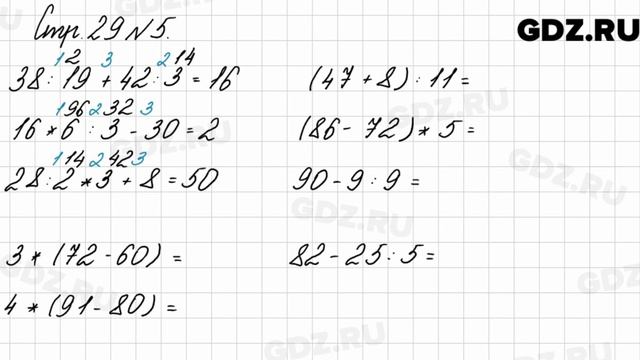 Стр. 29 № 5.
GDZ.RU
1 2 3 2 14
38 : 19 + 42 : 3 = 16
1 96 2 32 3
16 * 6 : 3 - 30 = 2
1 14 2 42 3
28 : 2 * 3 + 8 = 50
3 * (72 - 60) =
4 * (91 - 80) =
(47 + 8) : 11 =
(86 - 72) * 5 =
90 - 9 : 9 =
82 - 25 : 5 =
GDZ.RU
GDZ.RU
GDZ.RU
GDZ.RU
GDZ.RU
GDZ.RU
GDZ.RU